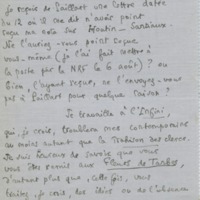 Je reçois de Paillart une lettre datée
du 12 où il me dit n'avoir point
reçu ma note sur
Ne l'auriez-vous point reçue
vous-même (je l'ai fait mettre à
la poste par la NRF le 6 août) ? ou
bien, l'ayant reçue, ne l'envoyez-vous
pas à Paillart pour quelque raison ?
Je travaille à l'
qui, je crois, troublera mes contemporains
au moins autant que la Trahison des clercs.
Je suis heureux de savoir que vous
vous êtes remis aux Fleurs de Tarbes,
d'autant plus que, cette fois, vous
je crois, de